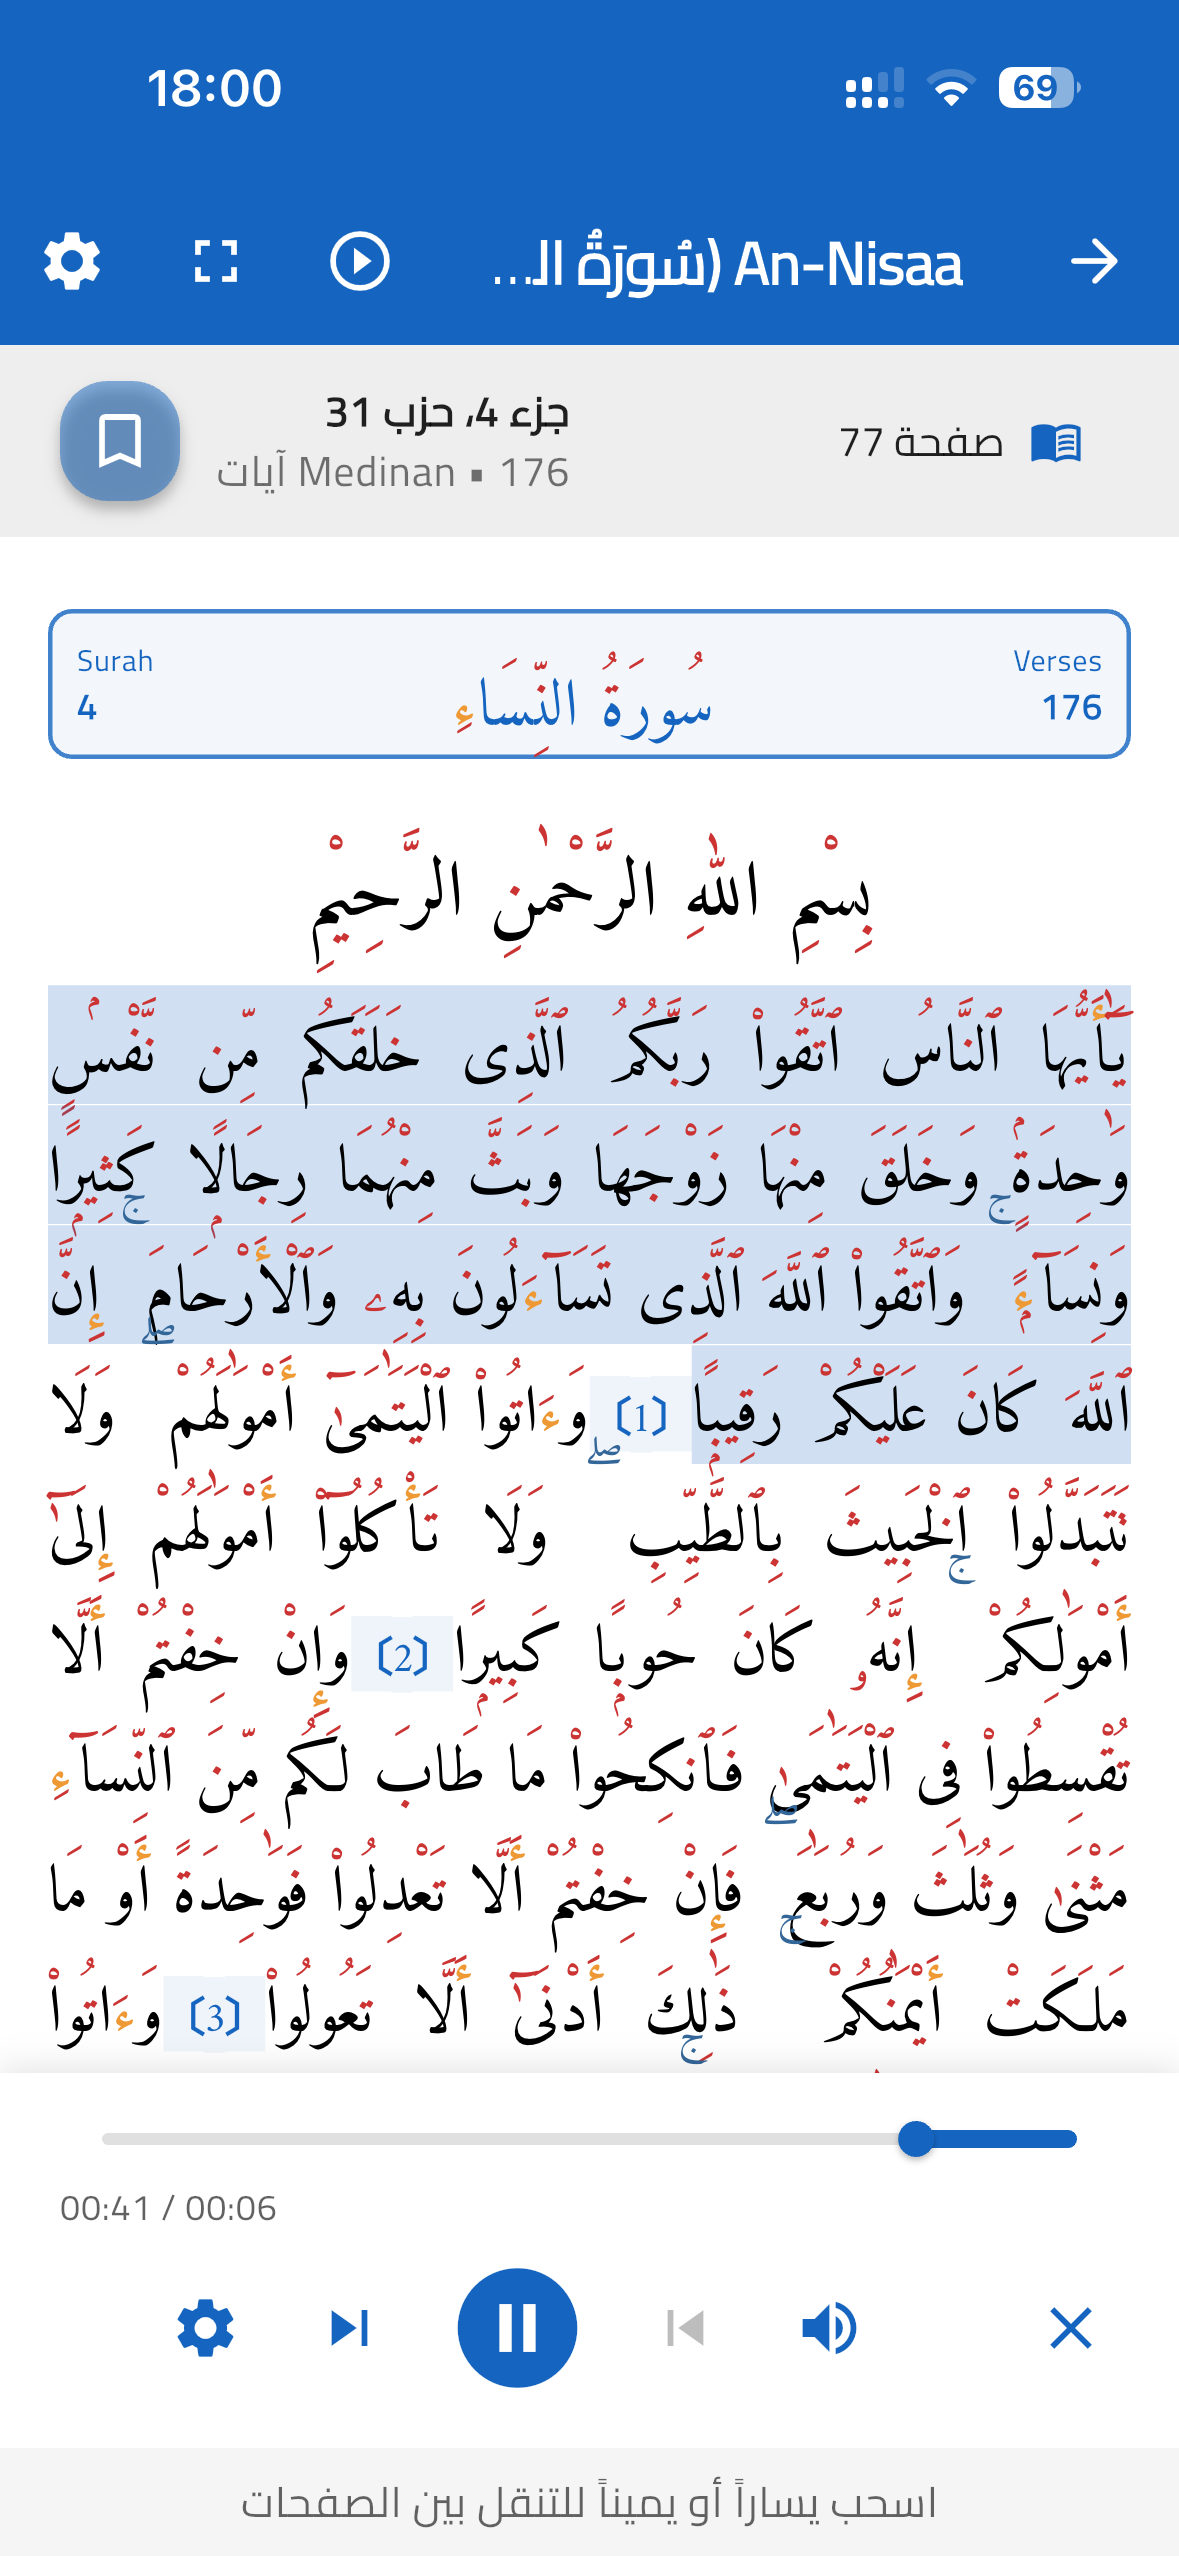 18:00
69
An-Nisaa (سُورَةُ ال...
صفحة 77
جزء 4، حزب 31
176 ▪ Medinan آيات
Surah
4
سُورَةُ النِّسَاءِ
Verses
176
بِسْمِ اللّٰهِ الرَّحْمٰنِ الرَّحِيْمِ
يَٰٓأَيُّهَا ٱلنَّاسُ ٱتَّقُوا۟ رَبَّكُمُ ٱلَّذِى خَلَقَكُم مِّن نَّفْسٍۢ
وَٰحِدَةٍۢ وَخَلَقَ مِنْهَا زَوْجَهَا وَبَثَّ مِنْهُمَا رِجَالًۭا كَثِيرًۭا
وَنِسَآءًۭ ۚ وَٱتَّقُوا۟ ٱللَّهَ ٱلَّذِى تَسَآءَلُونَ بِهِۦ وَٱلْأَرْحَامَ ۚ إِنَّ
ٱللَّهَ كَانَ عَلَيْكُمْ رَقِيبًۭا ﴿1﴾ وَءَاتُوا۟ ٱلْيَتَٰمَىٰٓ أَمْوَٰلَهُمْ ۖ وَلَا
تَتَبَدَّلُوا۟ ٱلْخَبِيثَ بِٱلطَّيِّبِ ۖ وَلَا تَأْكُلُوٓا۟ أَمْوَٰلَهُمْ إِلَىٰٓ
أَمْوَٰلِكُمْ ۚ إِنَّهُۥ كَانَ حُوبًۭا كَبِيرًۭا ﴿2﴾ وَإِنْ خِفْتُمْ أَلَّا
تُقْسِطُوا۟ فِى ٱلْيَتَٰمَىٰ فَٱنكِحُوا۟ مَا طَابَ لَكُم مِّنَ ٱلنِّسَآءِ
مَثْنَىٰ وَثُلَٰثَ وَرُبَٰعَ ۖ فَإِنْ خِفْتُمْ أَلَّا تَعْدِلُوا۟ فَوَٰحِدَةً أَوْ مَا
مَلَكَتْ أَيْمَٰنُكُمْ ۚ ذَٰلِكَ أَدْنَىٰٓ أَلَّا تَعُولُوا۟ ﴿3﴾ وَءَاتُوا۟
00:41 / 00:06
اسحب يساراً أو يميناً للتنقل بين الصفحات